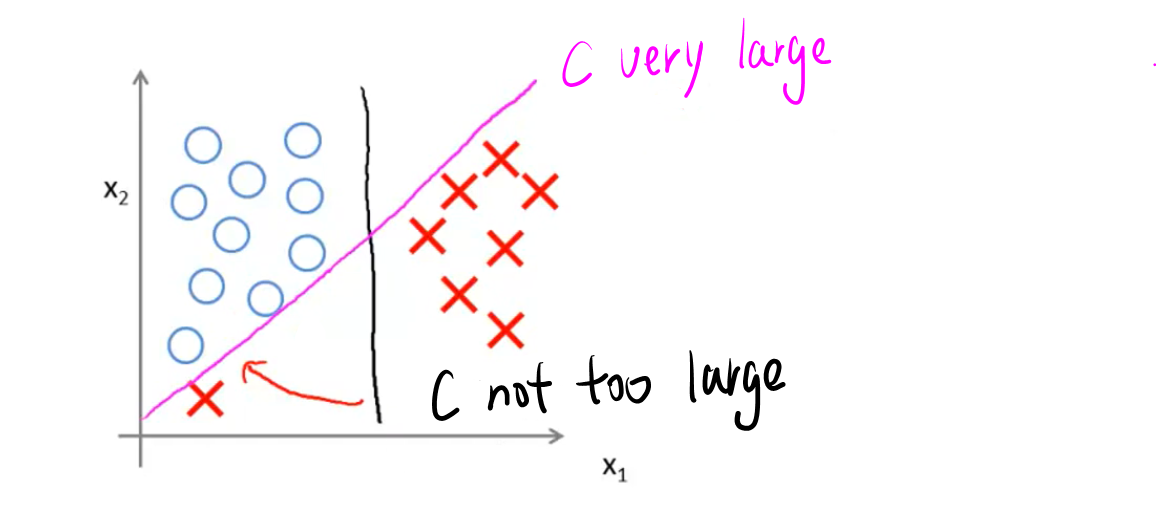 C very large
x₂
C not too large
x₁